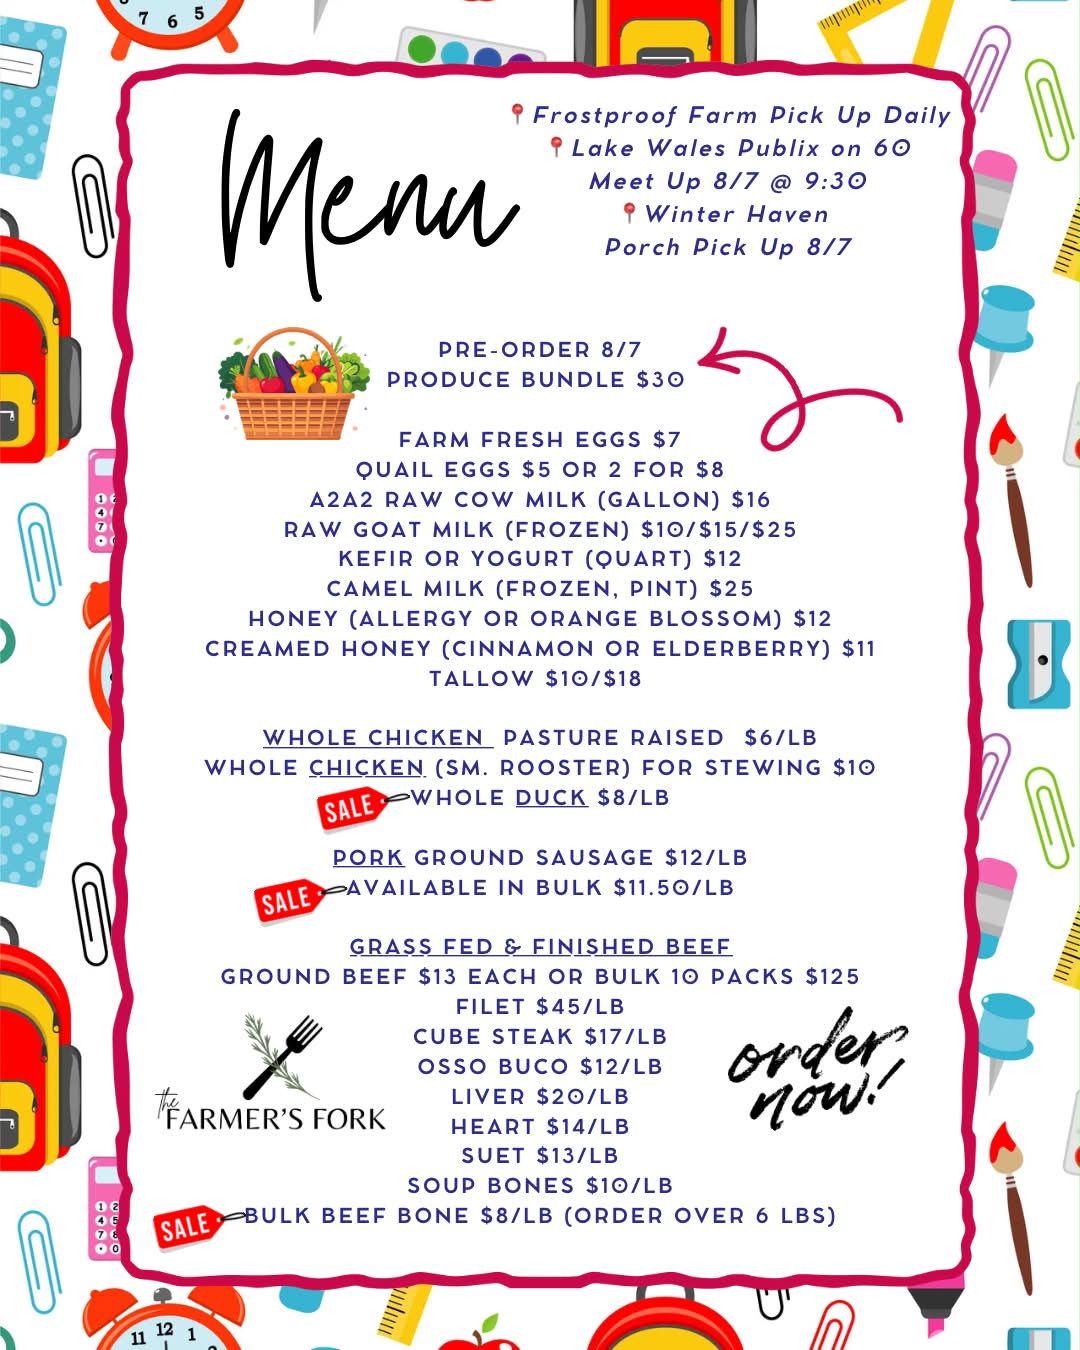 Menu
Frostproof Farm Pick Up Daily
Lake Wales Publix on 60
Meet Up 8/7 @ 9:30
Winter Haven
Porch Pick Up 8/7
PRE-ORDER 8/7
PRODUCE BUNDLE $30
FARM FRESH EGGS $7
QUAIL EGGS $5 OR 2 FOR $8
A2A2 RAW COW MILK (GALLON) $16
RAW GOAT MILK (FROZEN) $10/$15/$25
KEFIR OR YOGURT (QUART) $12
CAMEL MILK (FROZEN, PINT) $25
HONEY (ALLERGY OR ORANGE BLOSSOM) $12
CREAMED HONEY (CINNAMON OR ELDERBERRY) $11
TALLOW $10/$18
WHOLE CHICKEN PASTURE RAISED $6/LB
WHOLE CHICKEN (SM. ROOSTER) FOR STEWING $10
SALE WHOLE DUCK $8/LB
PORK GROUND SAUSAGE $12/LB
SALE AVAILABLE IN BULK $11.50/LB
GRASS FED & FINISHED BEEF
GROUND BEEF $13 EACH OR BULK 10 PACKS $125
FILET $45/LB
CUBE STEAK $17/LB
OSSO BUCO $12/LB
LIVER $20/LB
HEART $14/LB
SUET $13/LB
SOUP BONES $10/LB
SALE BULK BEEF BONE $8/LB (ORDER OVER 6 LBS)
the
FARMER'S FORK
order
now!
7 6 5
11 12 1